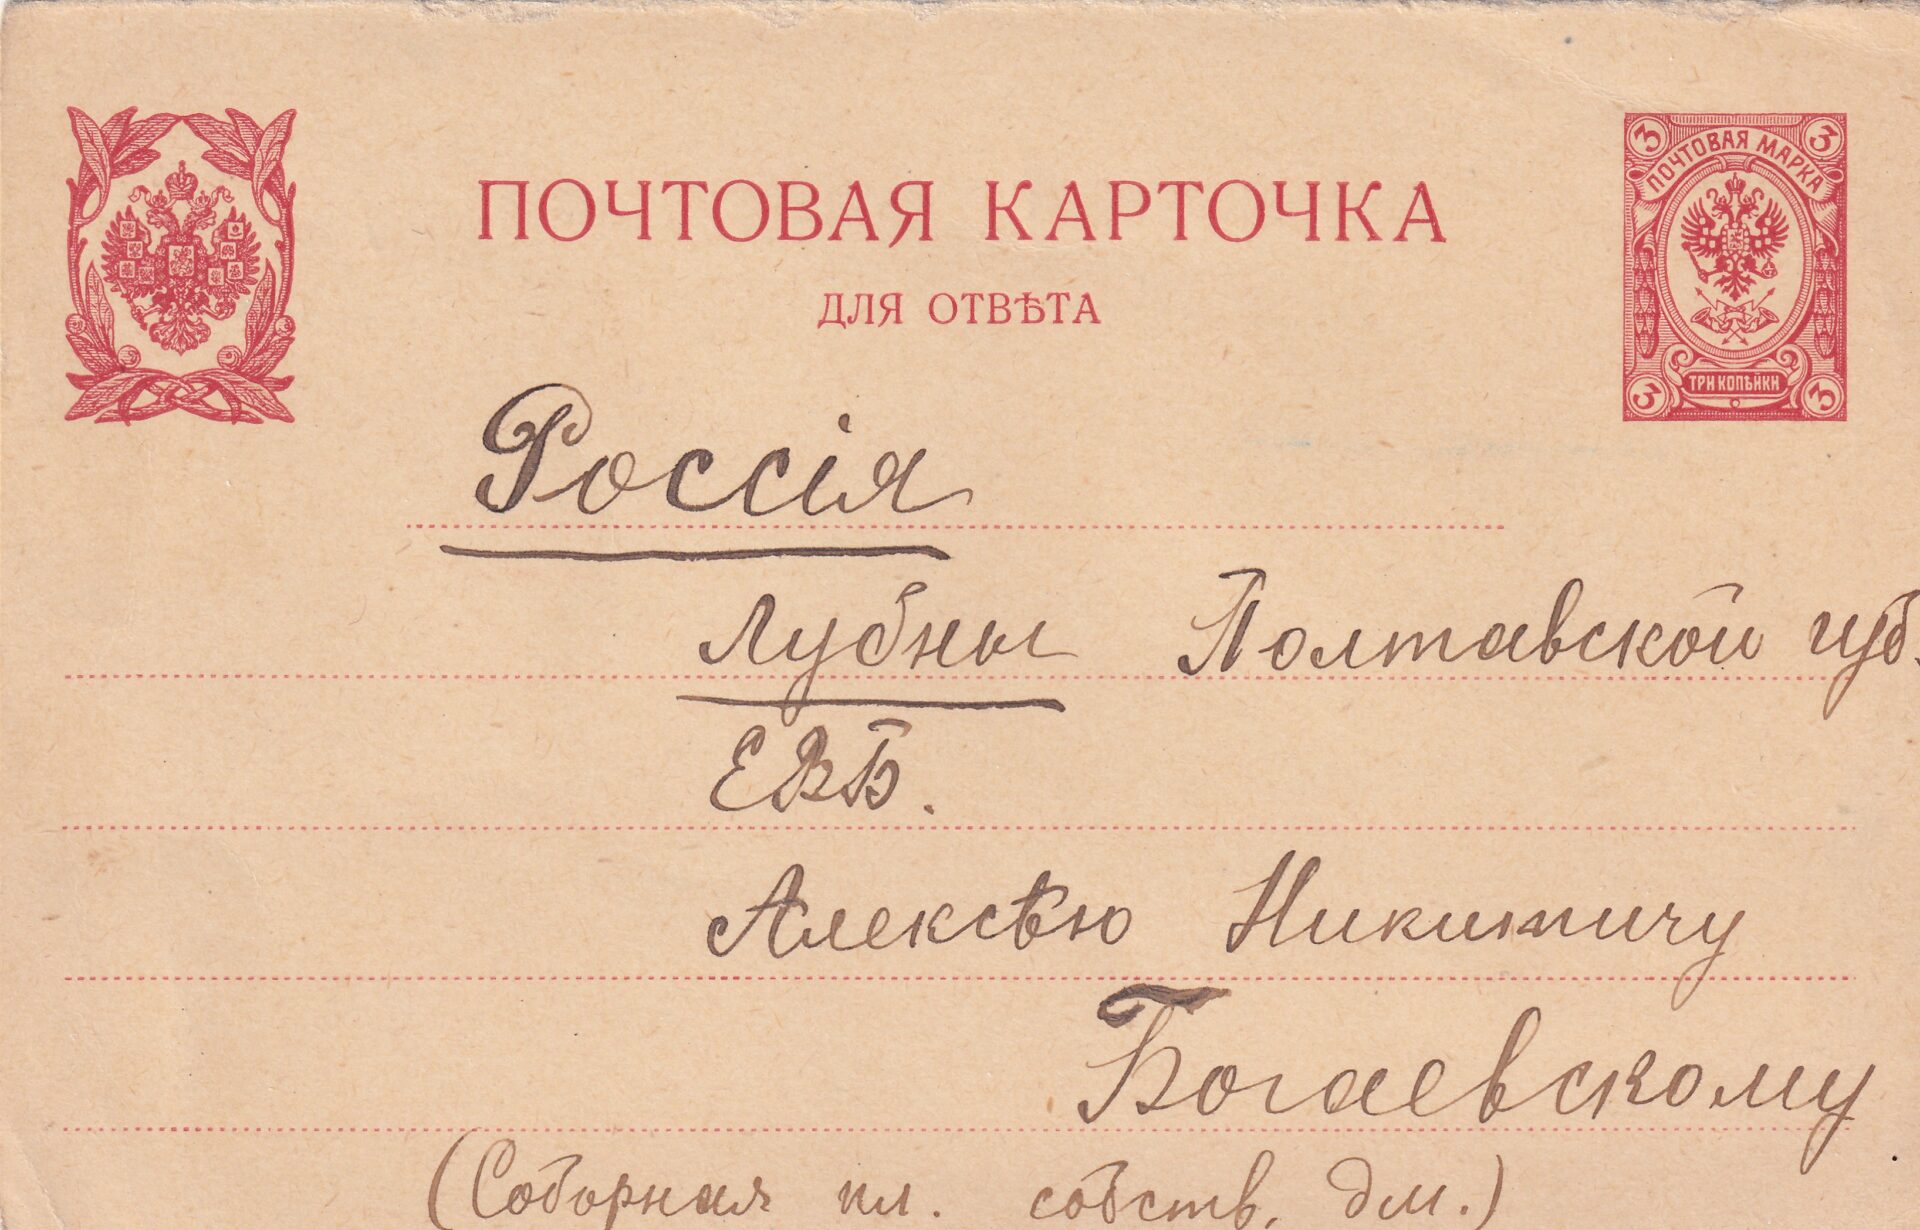 ПОЧТОВАЯ КАРТОЧКА
ДЛЯ ОТВѢТА
3 3
ПОЧТОВАЯ МАРКА
ТРИ КОПѢЙКИ
3 3
Россія
Лубны Полтавской губ.
ЕВБ.
Алексѣю Никитичу
Богаевскому
(Соборная пл. собств. дм.)